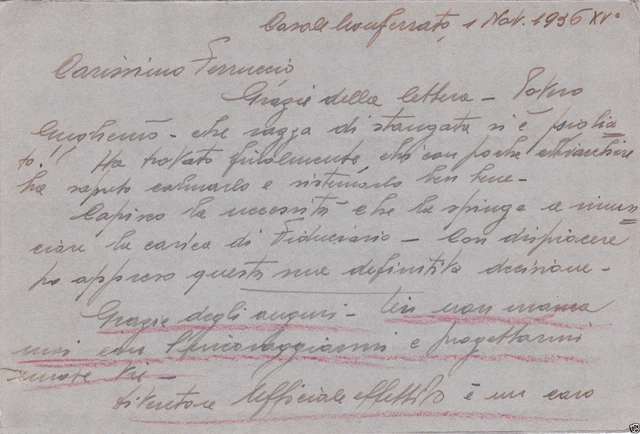 Casale Monferrato, 1 Nov. 1936 XV°
Carissimo Ferruccio,
Grazie della lettera - Povero
Guglielmo - che razza di stangata si è piglia
to!! Ha trovato finalmente chi con poche chiacchiere
ha saputo calmarlo e sistemarlo ben bene -
Capisco la necessità che la spinge a rinun
ciare la carica di Fiduciario - Con dispiacere
ho appreso questa sua definitiva decisione -
Grazie degli auguri - Lei non manca
mai con l'incoraggiarmi e progettarmi
nuove vie -
Diventare Ufficiale Effettivo è un caro